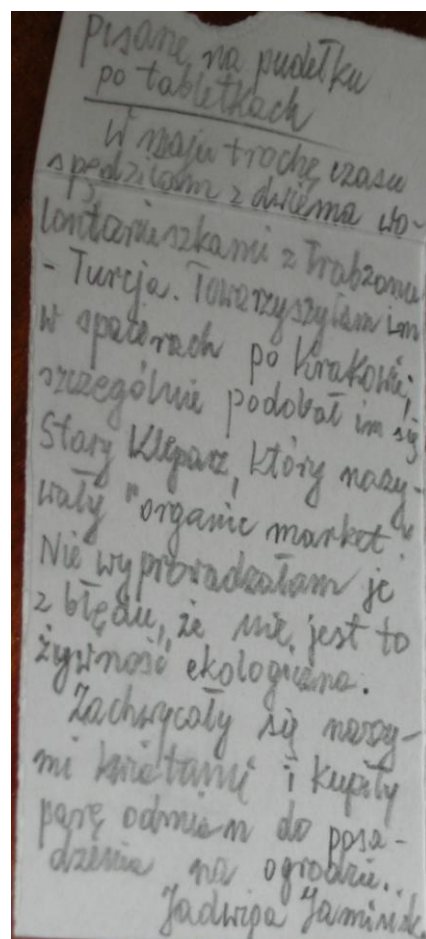 pisane na pudełku
po tabletkach
W maju trochę czasu
spędziłam z dwiema wo-
lontariuszkami z Trabzonu
- Turcja. Towarzyszyłam im
w spacerach po Krakowie,
szczególnie podobał im się
Stary Kleparz, który nazy-
wały "organic market".
Nie wyprowadzałam je
z błędu, że nie jest to
żywność ekologiczna.
Zachwycały się naszy-
mi kwiatami i kupiły
parę odmian do posa-
dzenia na ogrodzie..
Jadwiga